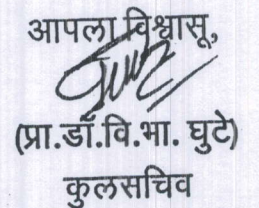 आपला विश्वासू,
(प्रा.डॉ.वि.भा. घुटे)
कुलसचिव